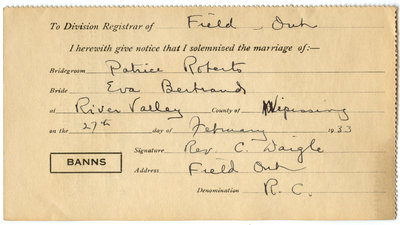 To Division Registrar of Field Ont
I herewith give notice that I solemnized the marriage of:—
Bridegroom Patrice Roberts
Bride Eva Bertrand
at River Valley County of Nipissing
on the 27th day of February 1933
Signature Rev. C. Daigle
BANNS
Address Field Ont
Denomination R. C.